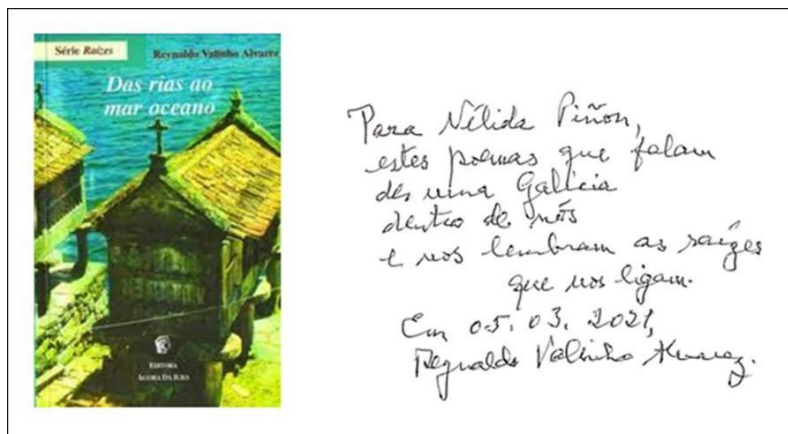 Série Raízes
Reynaldo Valinho Alvarez
Das rias ao
mar oceano
EDITORA
ÁGORA DA ILHA
Para Nélida Piñon,
estes poemas que falam
de uma Galícia
dentro de nós
e nos lembram as raízes
que nos ligam.
Em 05.03.2021,
Reynaldo Valinho Alvarez.